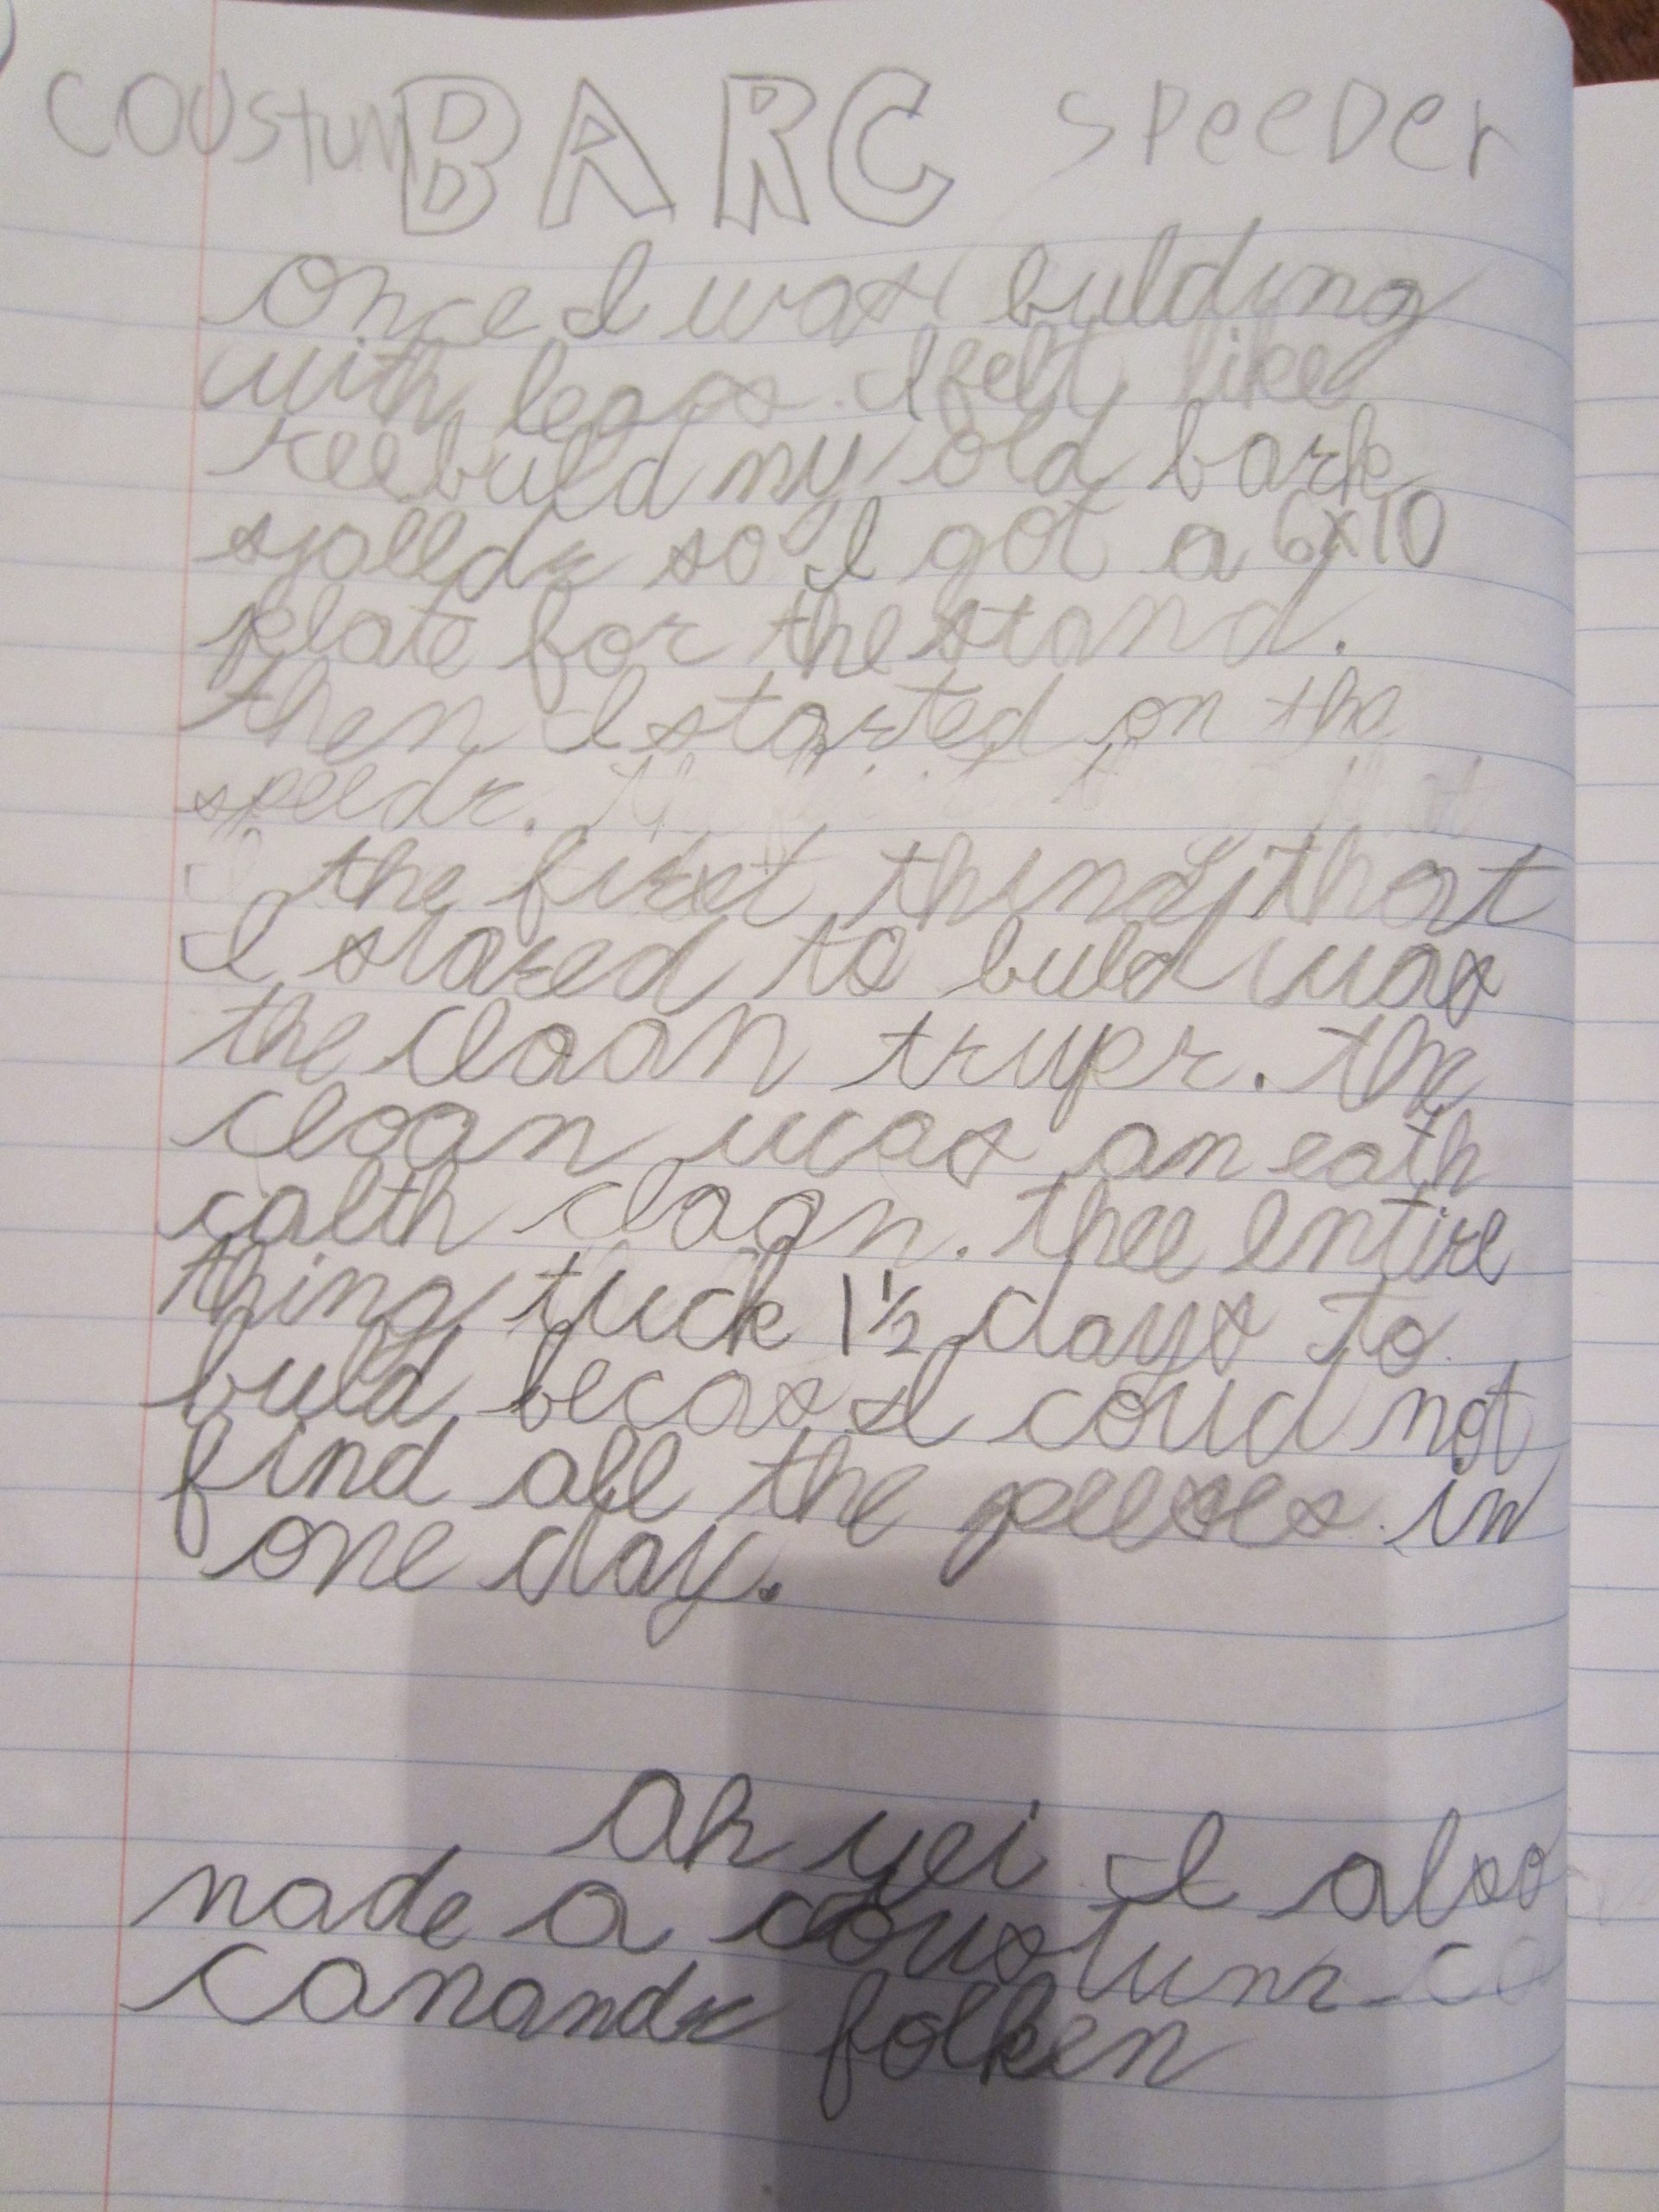 coustum BARC speeder
once I was bulding
with legos. I felt like
reebuild my old bark
speedr so I got a 6x10
plate for the stand.
then I started on the
speedr.
the first thing that
I stared to buld was
the cloan trupr. the
cloan was an eath
calth cloan. thee entire
thing tuck 1 1/2 days to
buld becass I coud not
find all the peeses in
one day.
Ah yei I also
made a coustum
comandr folken